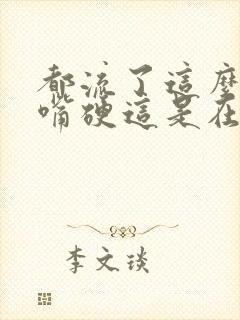 都流了這麼
嘴硬這是在
李文琰